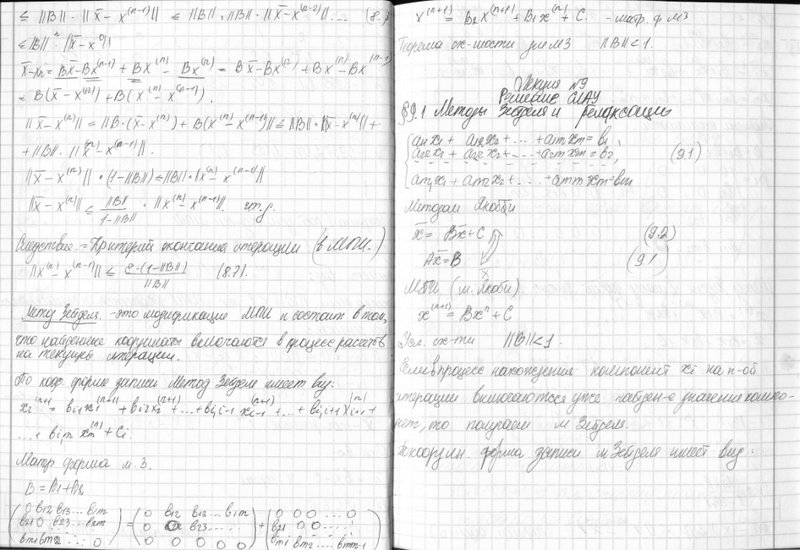 ≤ ||B|| · ||x̄ - x^(n-1)|| ≤ ||B|| · ||B|| · ||x̄ - x^(n-2)|| ... (8.
≤ ||B||^n · ||x̄ - x^0||
x̄ - xn = Bx̄ - Bx^(n-1) + Bx^(n) - Bx^(n) = Bx̄ - Bx^(n) + Bx^(n) - Bx^(n-1)
= B(x̄ - x^(n)) + B(x^(n) - x^(n-1)).
||x̄ - x^(n)|| = ||B·(x̄ - x^(n)) + B(x^(n) - x^(n-1))|| ≤ ||B||·||x̄ - x^(n)|| +
+ ||B||·||x^(n) - x^(n-1)||.
||x̄ - x^(n)|| · (1 - ||B||) ≤ ||B||·||x^(n) - x^(n-1)||
||x̄ - x^(n)|| ≤ ||B|| / (1 - ||B||) · ||x^(n) - x^(n-1)||. чт.д.
Следствие. - Критерий окончания итерации (в МПИ.)
||x^(n) - x^(n-1)|| ≤ ε·(1 - ||B||) / ||B|| (8.7).
Метод Зейделя - это модификация МПИ и состоит в том,
что найденные координаты включаются в процесс расчётов
на текущей итерации.
По коор. форме записи Метод Зейделя имеет вид:
xi^(n+1) = bi1 x1^(n+1) + bi2 x2^(n+1) + ... + bi,i-1 xi-1^(n+1) + ... + bi,i+1 xi+1^(n) +
... + bi,m xm^(n) + Ci.
Матр форма м. З.
B = B1 + B2
(0 b12 b13 ... b1m) = (0 b12 b13 ... b1m) + (0 0 0 ... 0)
(b21 0 b23 ... b2m) (0 0 b23 ...) (b21 0 0 ...)
(bm1 bm2 ... 0) (0 0 0 0 0) (bm1 bm2 ... bmm-1 0)
x^(n+1) = B2 x^(n+1) + B1 x^(n) + C. - матр. ф МЗ
Теорема сх-мости для МЗ ||B|| < 1.
Лекция №9
Решение СЛАУ
§9.1 Методы Зейделя и релаксации
a11x1 + a12x2 + ... + a1m xm = b1
a21x1 + a22x2 + ... + a2m xm = b2, (9.1)
am1x1 + am2x2 + ... + amm xm = bm
Методом Якоби
x̄ = Bx̄ + C (9.2)
Ax̄ = B (9.1)
МПИ (м. Якоби)
x^(n+1) = Bx^n + C
Усл. сх-ти ||B|| < 1.
Если в процесс нахождения компонент xi на n-ой
итерации включаются уже найден-е значения компо-
нент, то получаем м Зейделя.
В коорди. форма записи м Зейделя имеет вид: